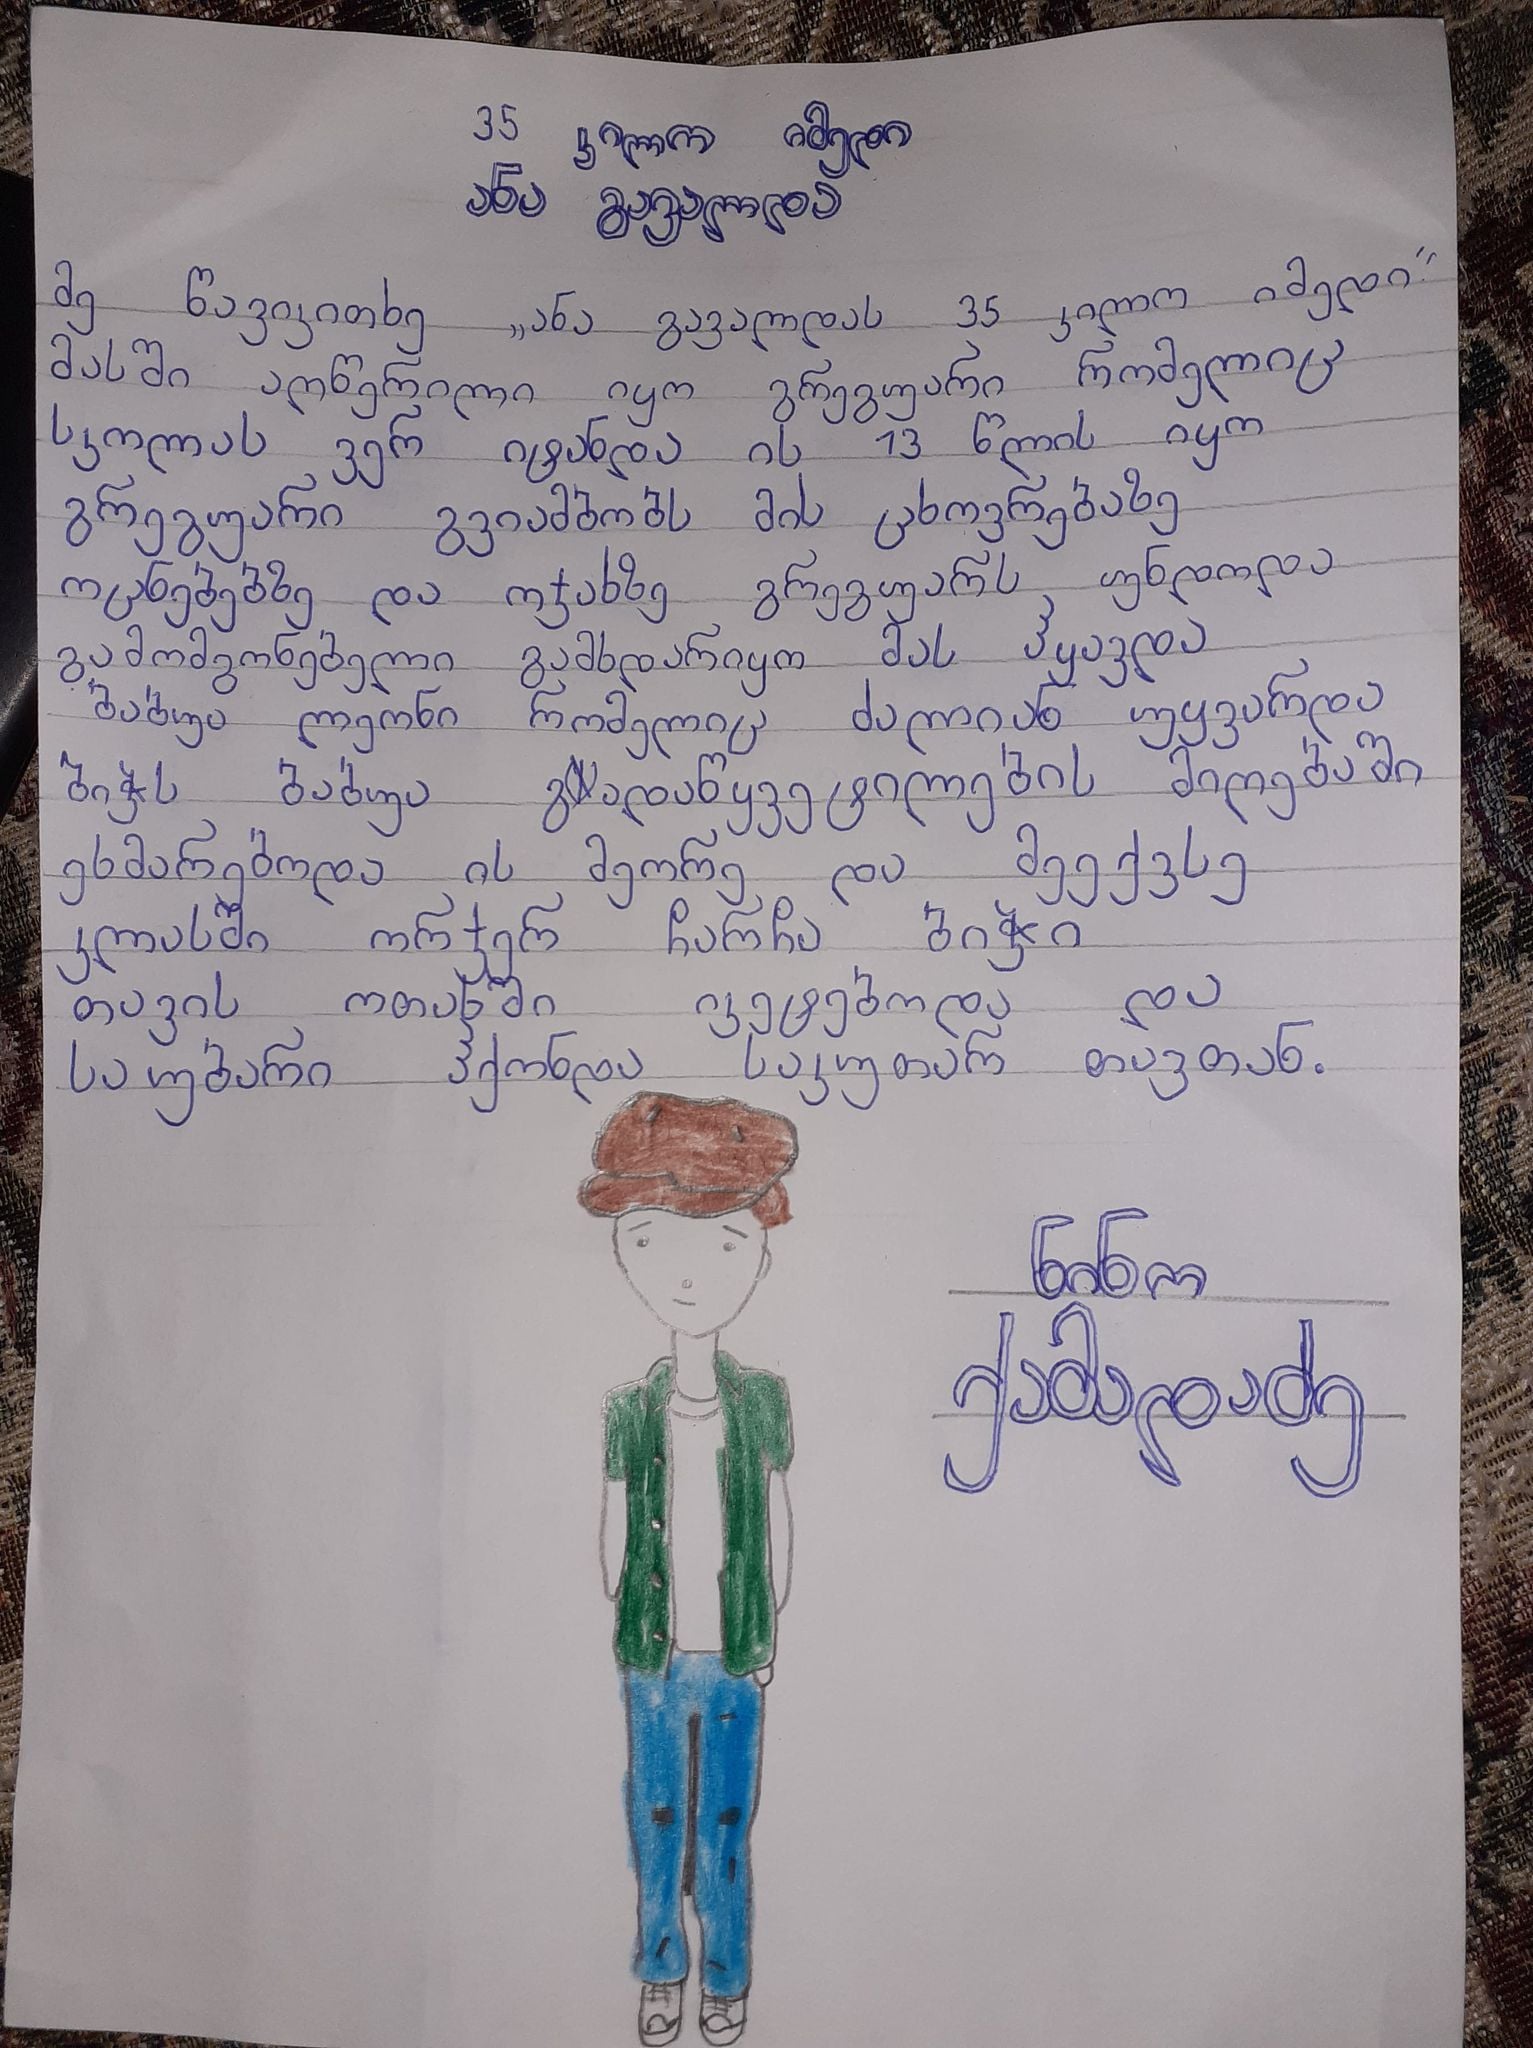 35 კილო იმედი
ანა გავალდა
მე წავიკითხე „ანა გავალდას 35 კილო იმედი“
მასში აღწერილი იყო გრეგუარი რომელიც
სკოლას ვერ იტანდა ის 13 წლის იყო
გრეგუარი გვიამბობს მის ცხოვრებაზე
ოცნებებზე და ოჯახზე გრეგუარს უნდოდა
გამომგონებელი გამხდარიყო მას ჰყავდა
ბაბუა ლეონი რომელიც ძალიან უყვარდა
ბიჭს ბაბუა გადაწყვეტილების მიღებაში
ეხმარებოდა ის მეორე და მეექვსე
კლასში ორჯერ ჩარჩა ბიჭი
თავის ოთახში იკეტებოდა და
საუბარი ჰქონდა საკუთარ თავთან.
ნინო
ქამადაძე